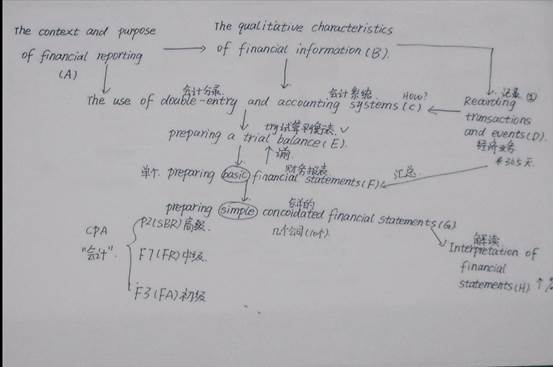 The context and purpose
of financial reporting
(A)
The qualitative characteristics
of financial information (B).
会计分录
会计系统
How?
The use of double-entry and accounting systems (c)
记录
Recording
transactions
and events (D).
经济业务
365天
try试算平衡表 ✓
preparing a trial balance (E).
调
财务报表
汇总
单个. preparing basic financial statements (F)
合并的
preparing simple concoidated financial statements (G)
n个公司
CPA
"会计".
P2 (SBR) 高级.
F7 (FR) 中级.
F3 (FA) 初级
解读
Interpretation of
financial
statements (H)